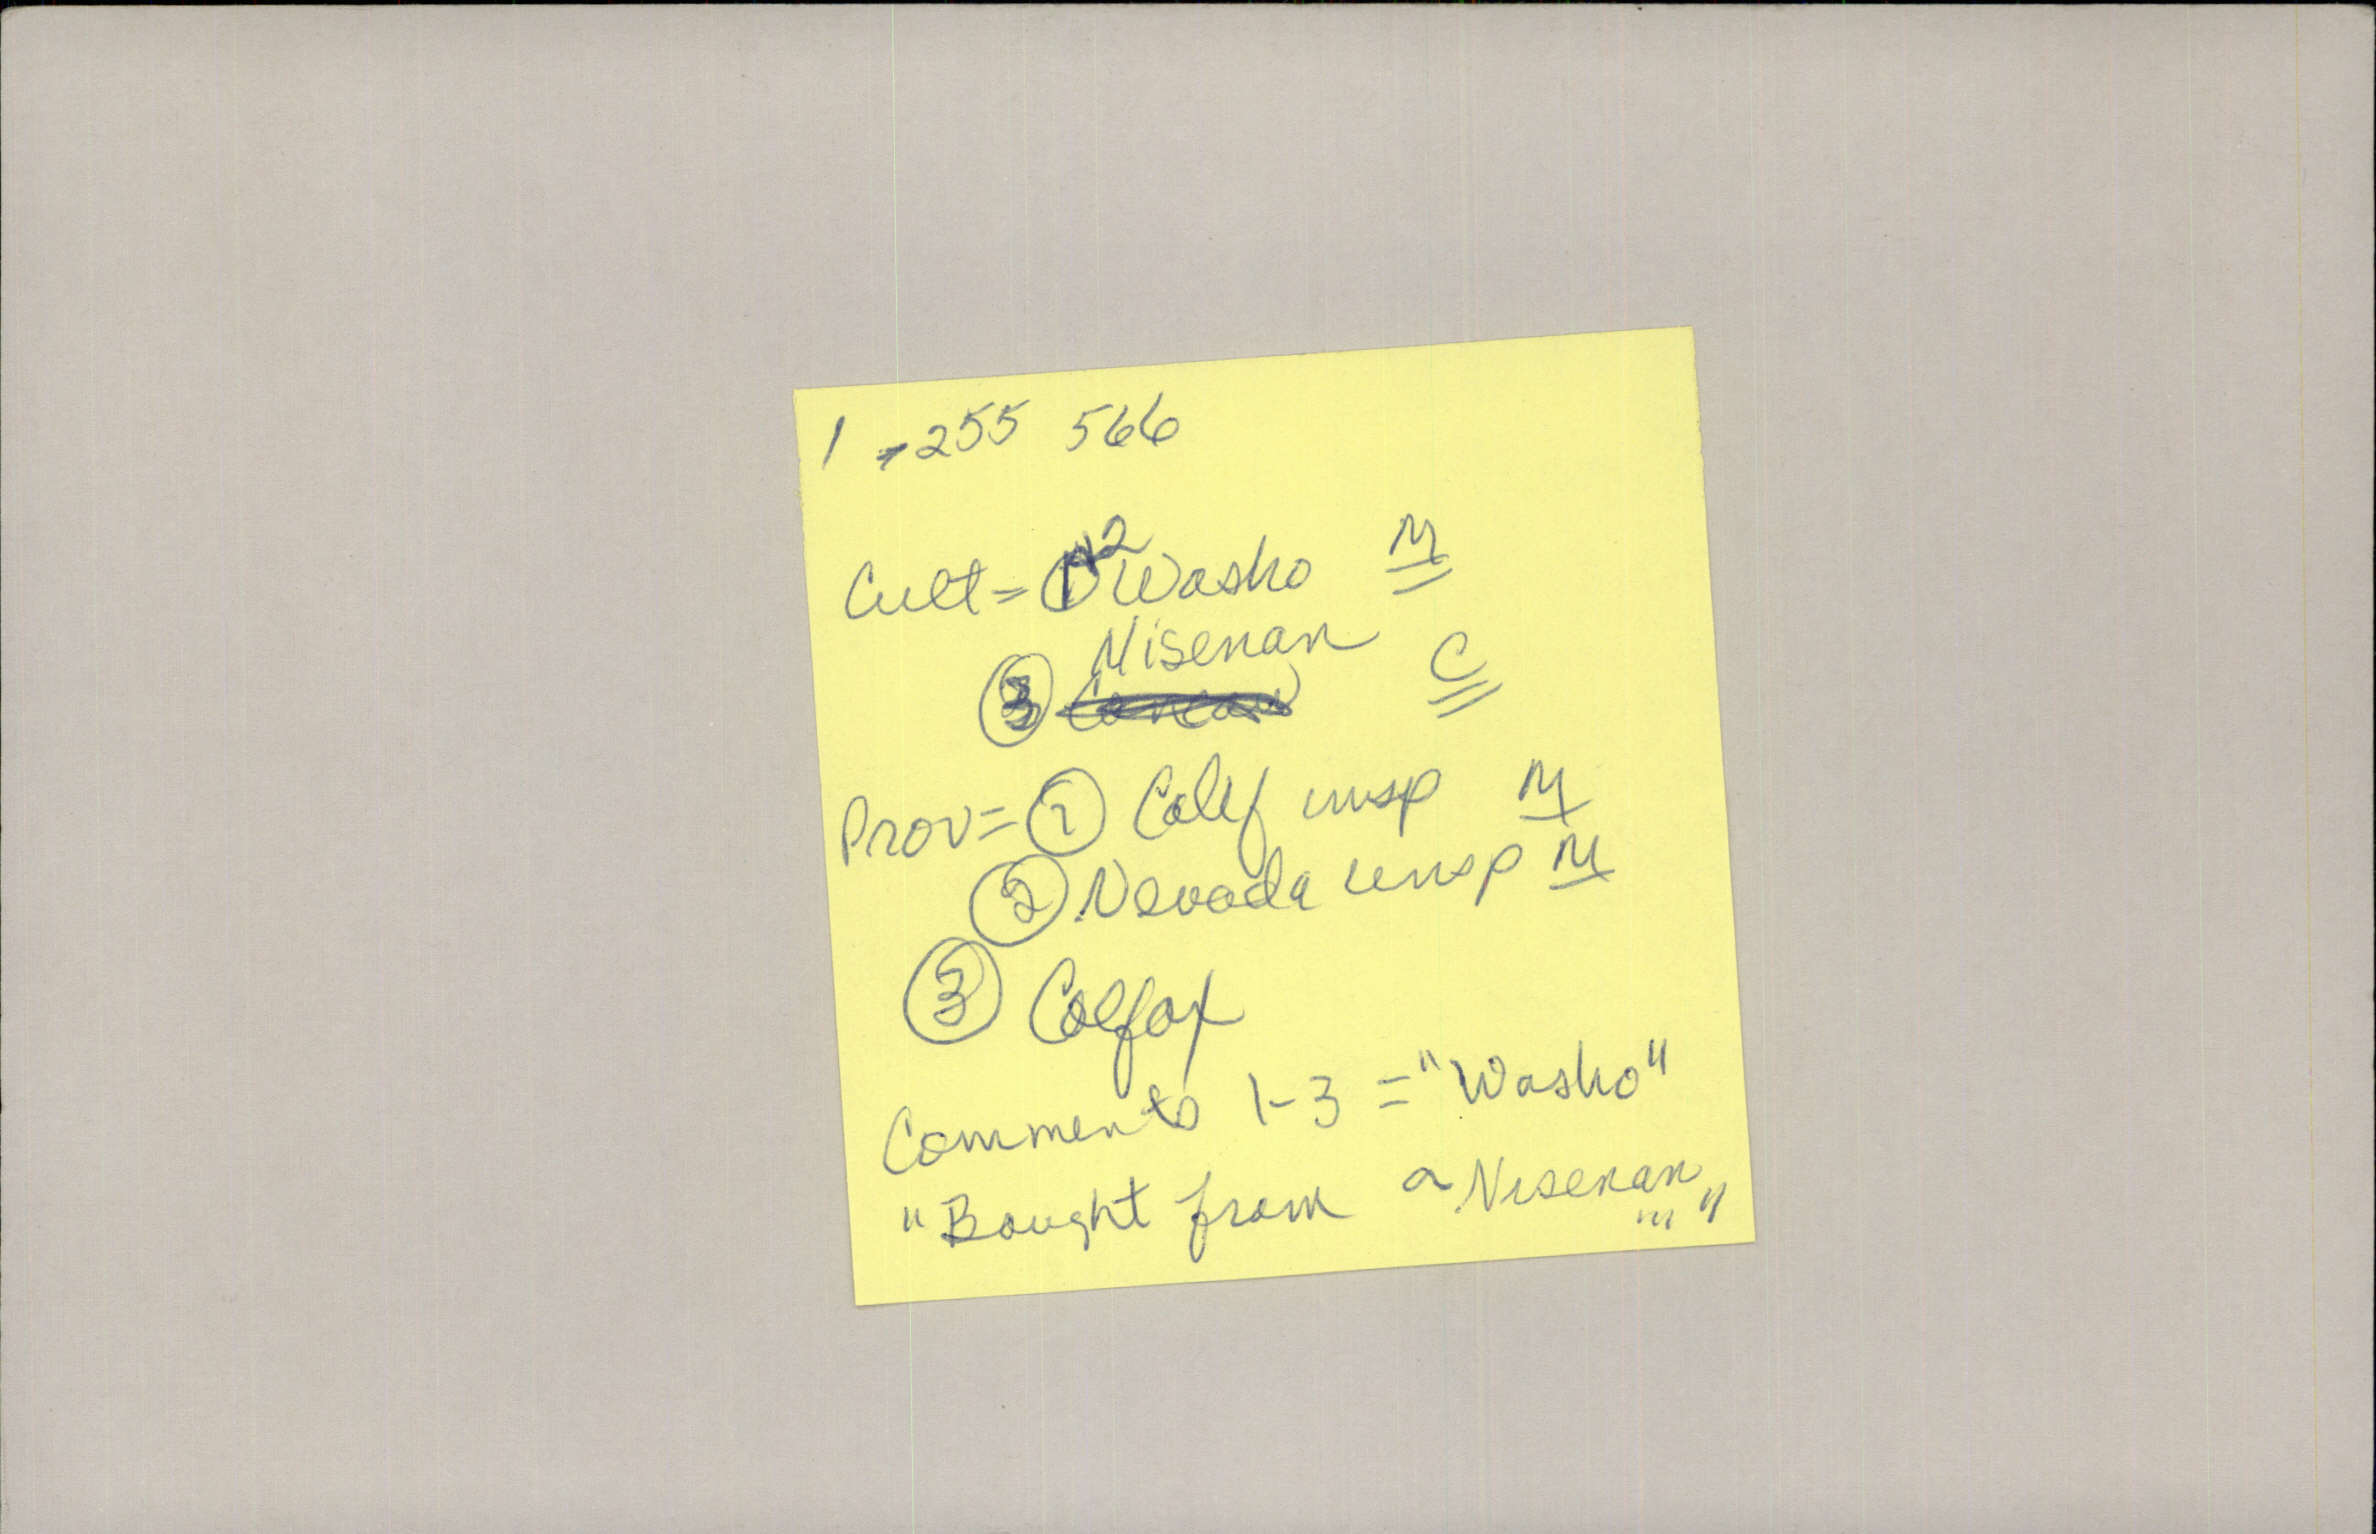 1 - 255 566
Cult = ① 2 Washo M
Nisenan C
③ Concow
Prov = ① Calif unsp M
② Nevada unsp M
③ Colfax
Comments 1-3 = "Washo"
"Bought from a Nisenan ..."